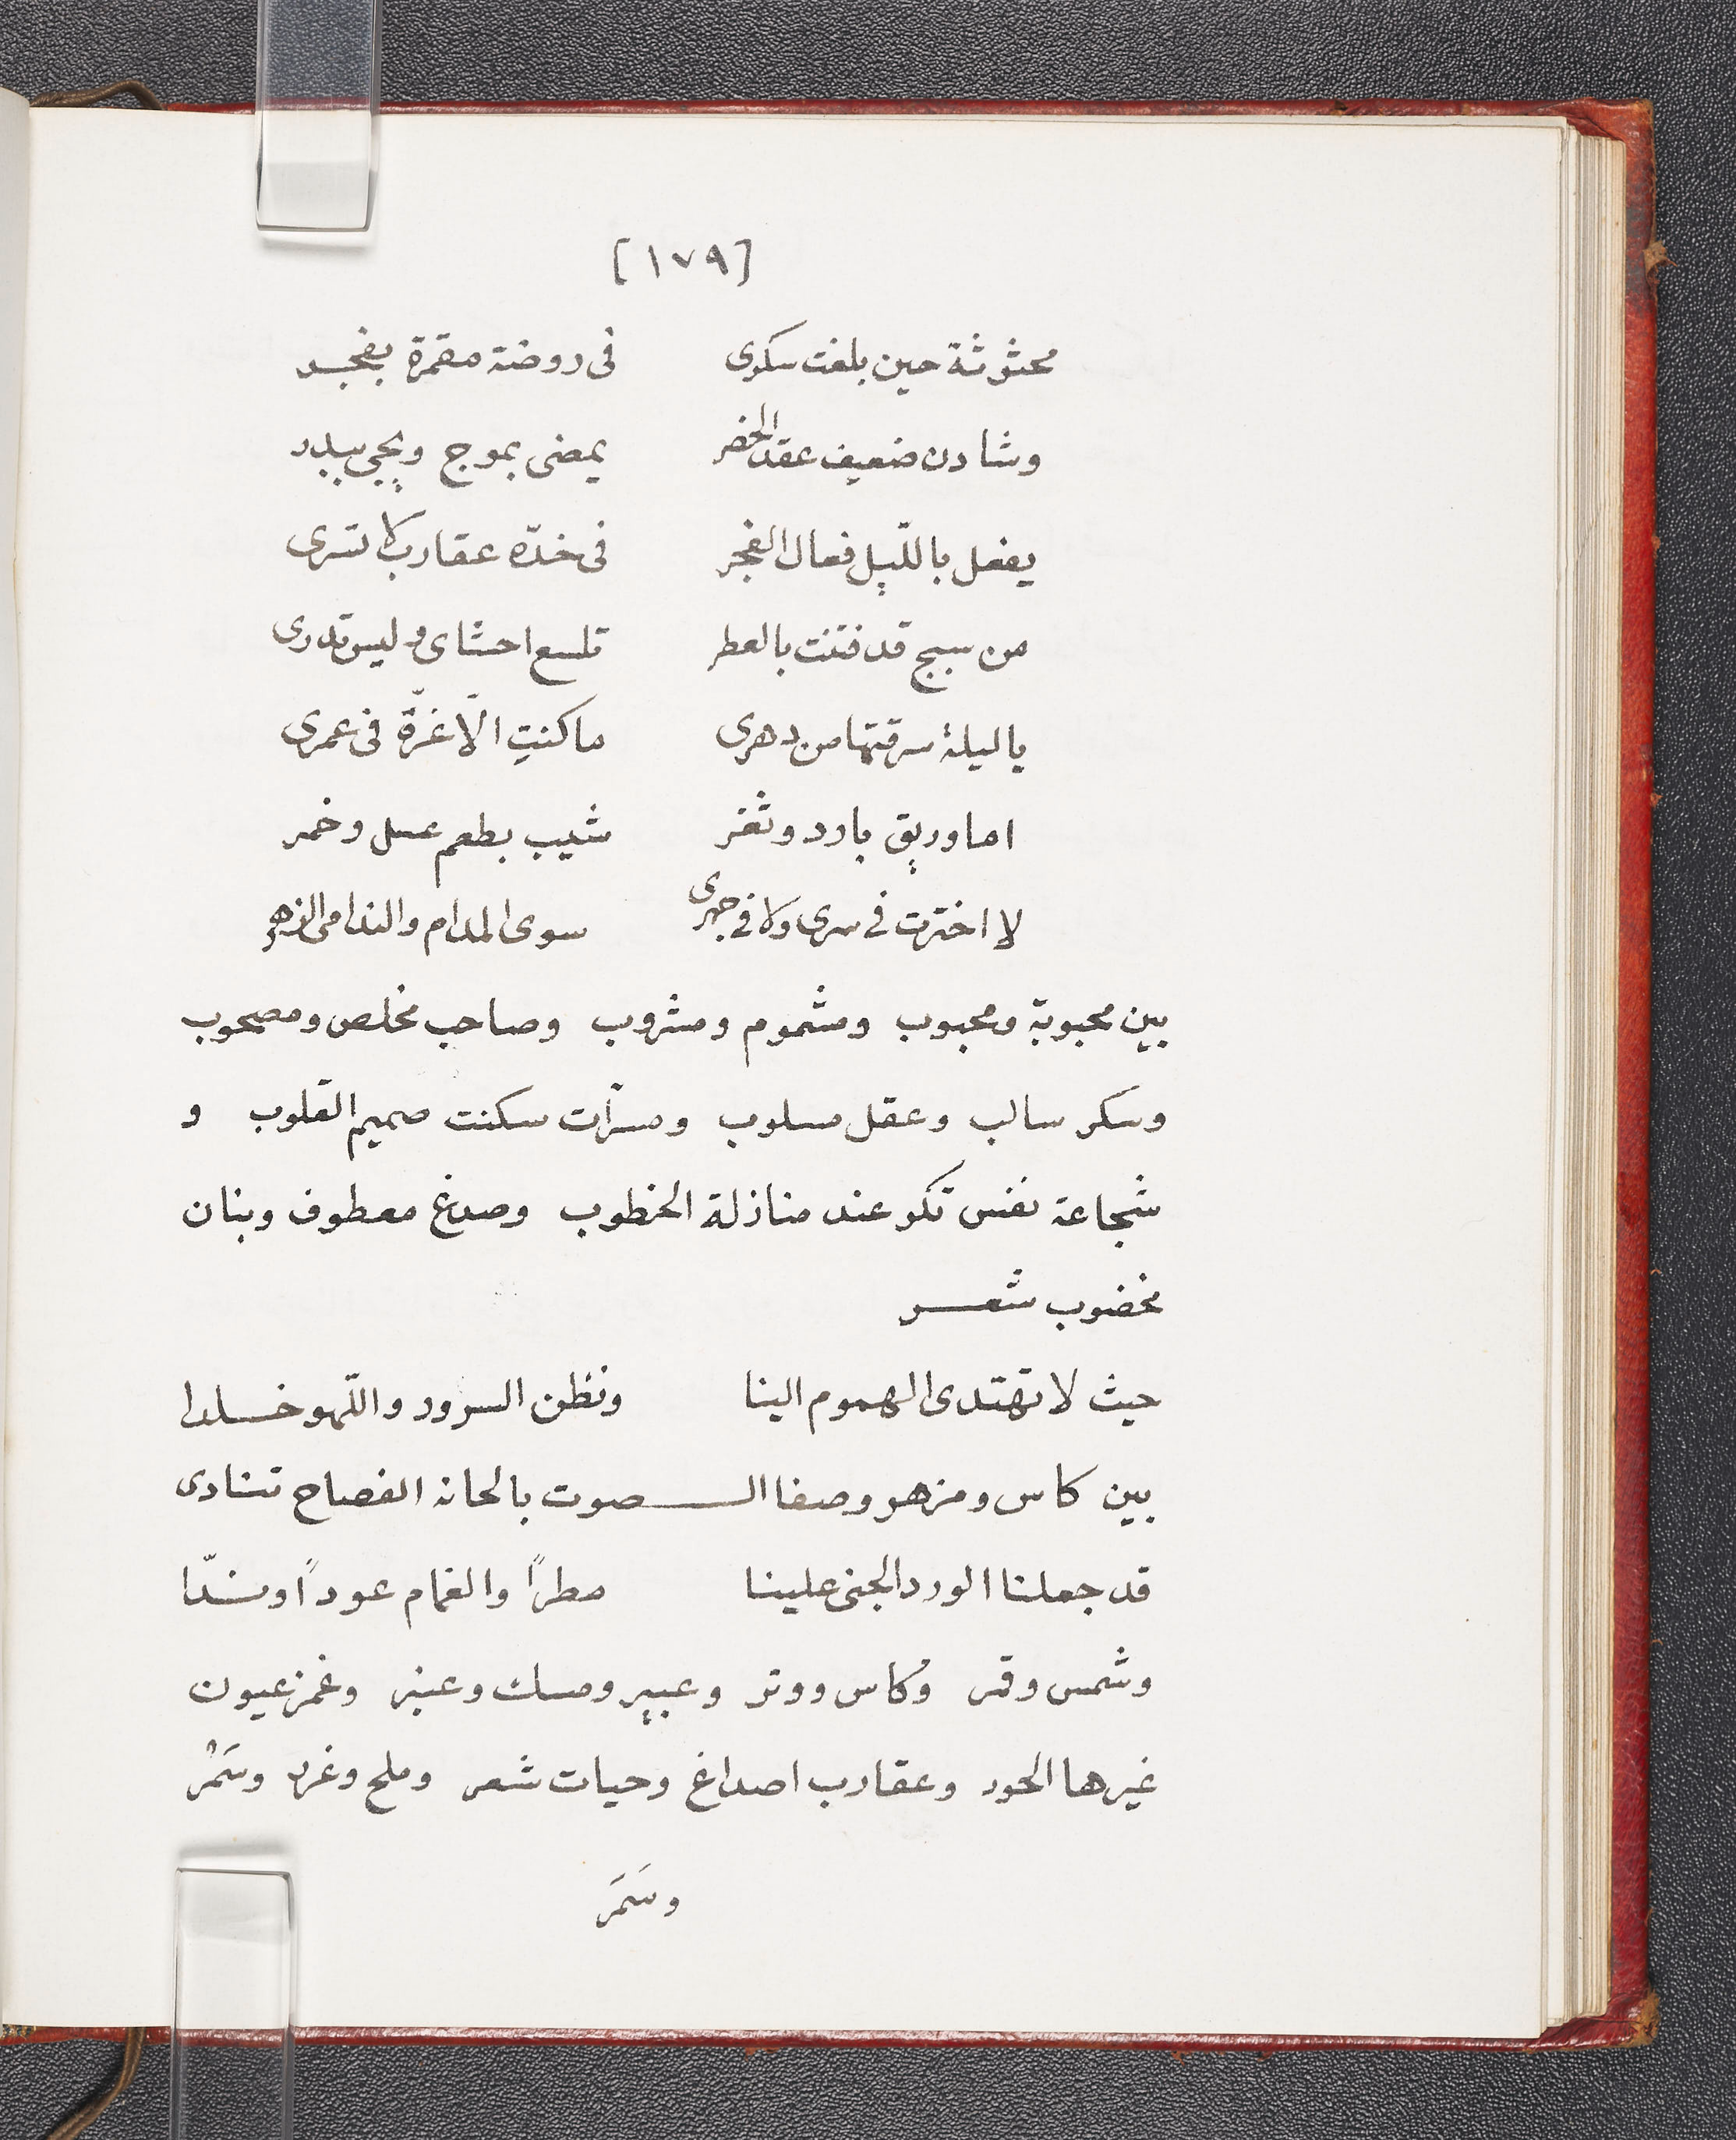 [١٧٩]
محثوثة حين بلغت سكرى في روضة مقمرة بفجر
وشادن ضعيف عقد الخضر يمضى بموج ويجي ببدر
يفعل بالليل فعال الفجر فى خدّه عقارب لا تسرى
من سبج قد فتنت بالعطر تلسع احشاى وليس تدرى
يا ليلة سرقتها من دهرى ما كنتِ الّا غرّة فى عمرى
اما وريق بارد وثغر شيب بطعم عسل وخمر
لا اخترت فى سرى ولا فى جهرى سوى المدام والندامى الزهر
بين محبوبة ومحبوب ومشموم ومشروب وصاحب مخلص ومصحوب
وسكر سالب وعقل مسلوب ومسرّات سكنت صميم القلوب و
شجاعة نفس تكر عند منازلة الخطوب وصدغ معطوف وبنان
مخضوب شعر
حيث لا تهتدى الهموم الينا ونظن السرور واللّهو خلدا
بين كاس ومزهر وصفا الصوت بالحانه الفصاح تنادى
قد جعلنا الورد الجنى علينا مطراً والغمام عوداً وندّا
وشمس وقمر وكاس ووتر وعبير ومسك وعنبر وغمز عيون
غيرها الحور وعقارب اصداغ وحيات شعر وملح وغرر وسَمُر
وسَمَر